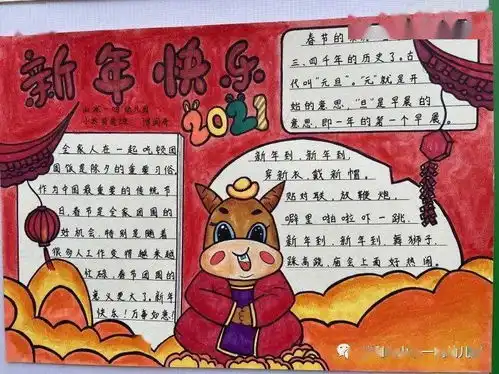 新年快乐
2021
全家人在一起吃顿团
圆饭是除夕的重要习俗,
作为中国最重要的传统节
日,春节是全家团圆的
好机会,特别是随着
很多人工作变得越来越
忙碌,春节团圆的
意义更大了,新年
快乐!万事如意!
春节的
三、四千年的历史了。古
代叫"元旦"。"元"就是开
始的意思,"旦"是早晨的
意思,即一年的第一个早晨。
新年到,新年到,
穿新衣,戴新帽。
贴对联,放鞭炮,
噼里啪啦吓一跳,
新年到,新年到,舞狮子
踩高跷,庙会上面好热闹。